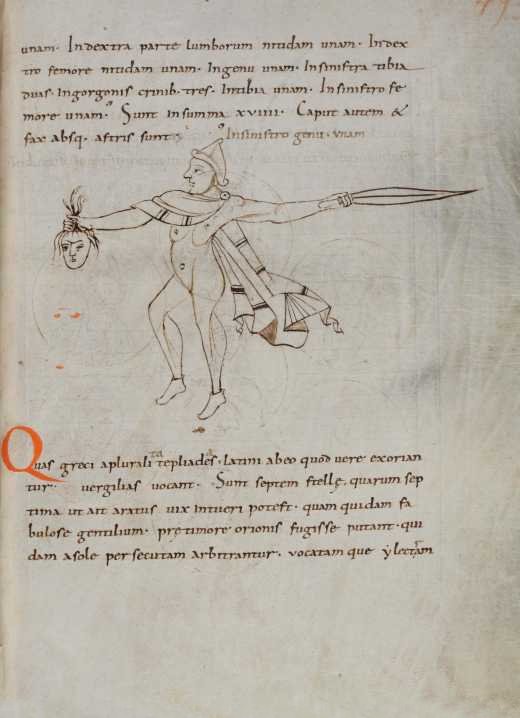 unam. In dextra parte lumborum nitidam unam. In dex
tro femore nitidam unam. In genu unam. In sinistra tibia
duas. In gorgonis crinib. tres. In tibia unam. In sinistro fe
more unam. Sunt in summa xviiii. Caput autem &
fax absq. astris sunt In sinistro genu. unam
Quas greci a pluralitate pliades. latini ab eo quod vere exorian
tur. vergilias vocant. Sunt septem stellę, quarum sep
tima ut ait aratus vix intueri potest. quam quidam fa
bulose gentilium. prę timore orionis fugisse putant. qui
dam a sole persecutam arbitrantur. vocatamque ylectram